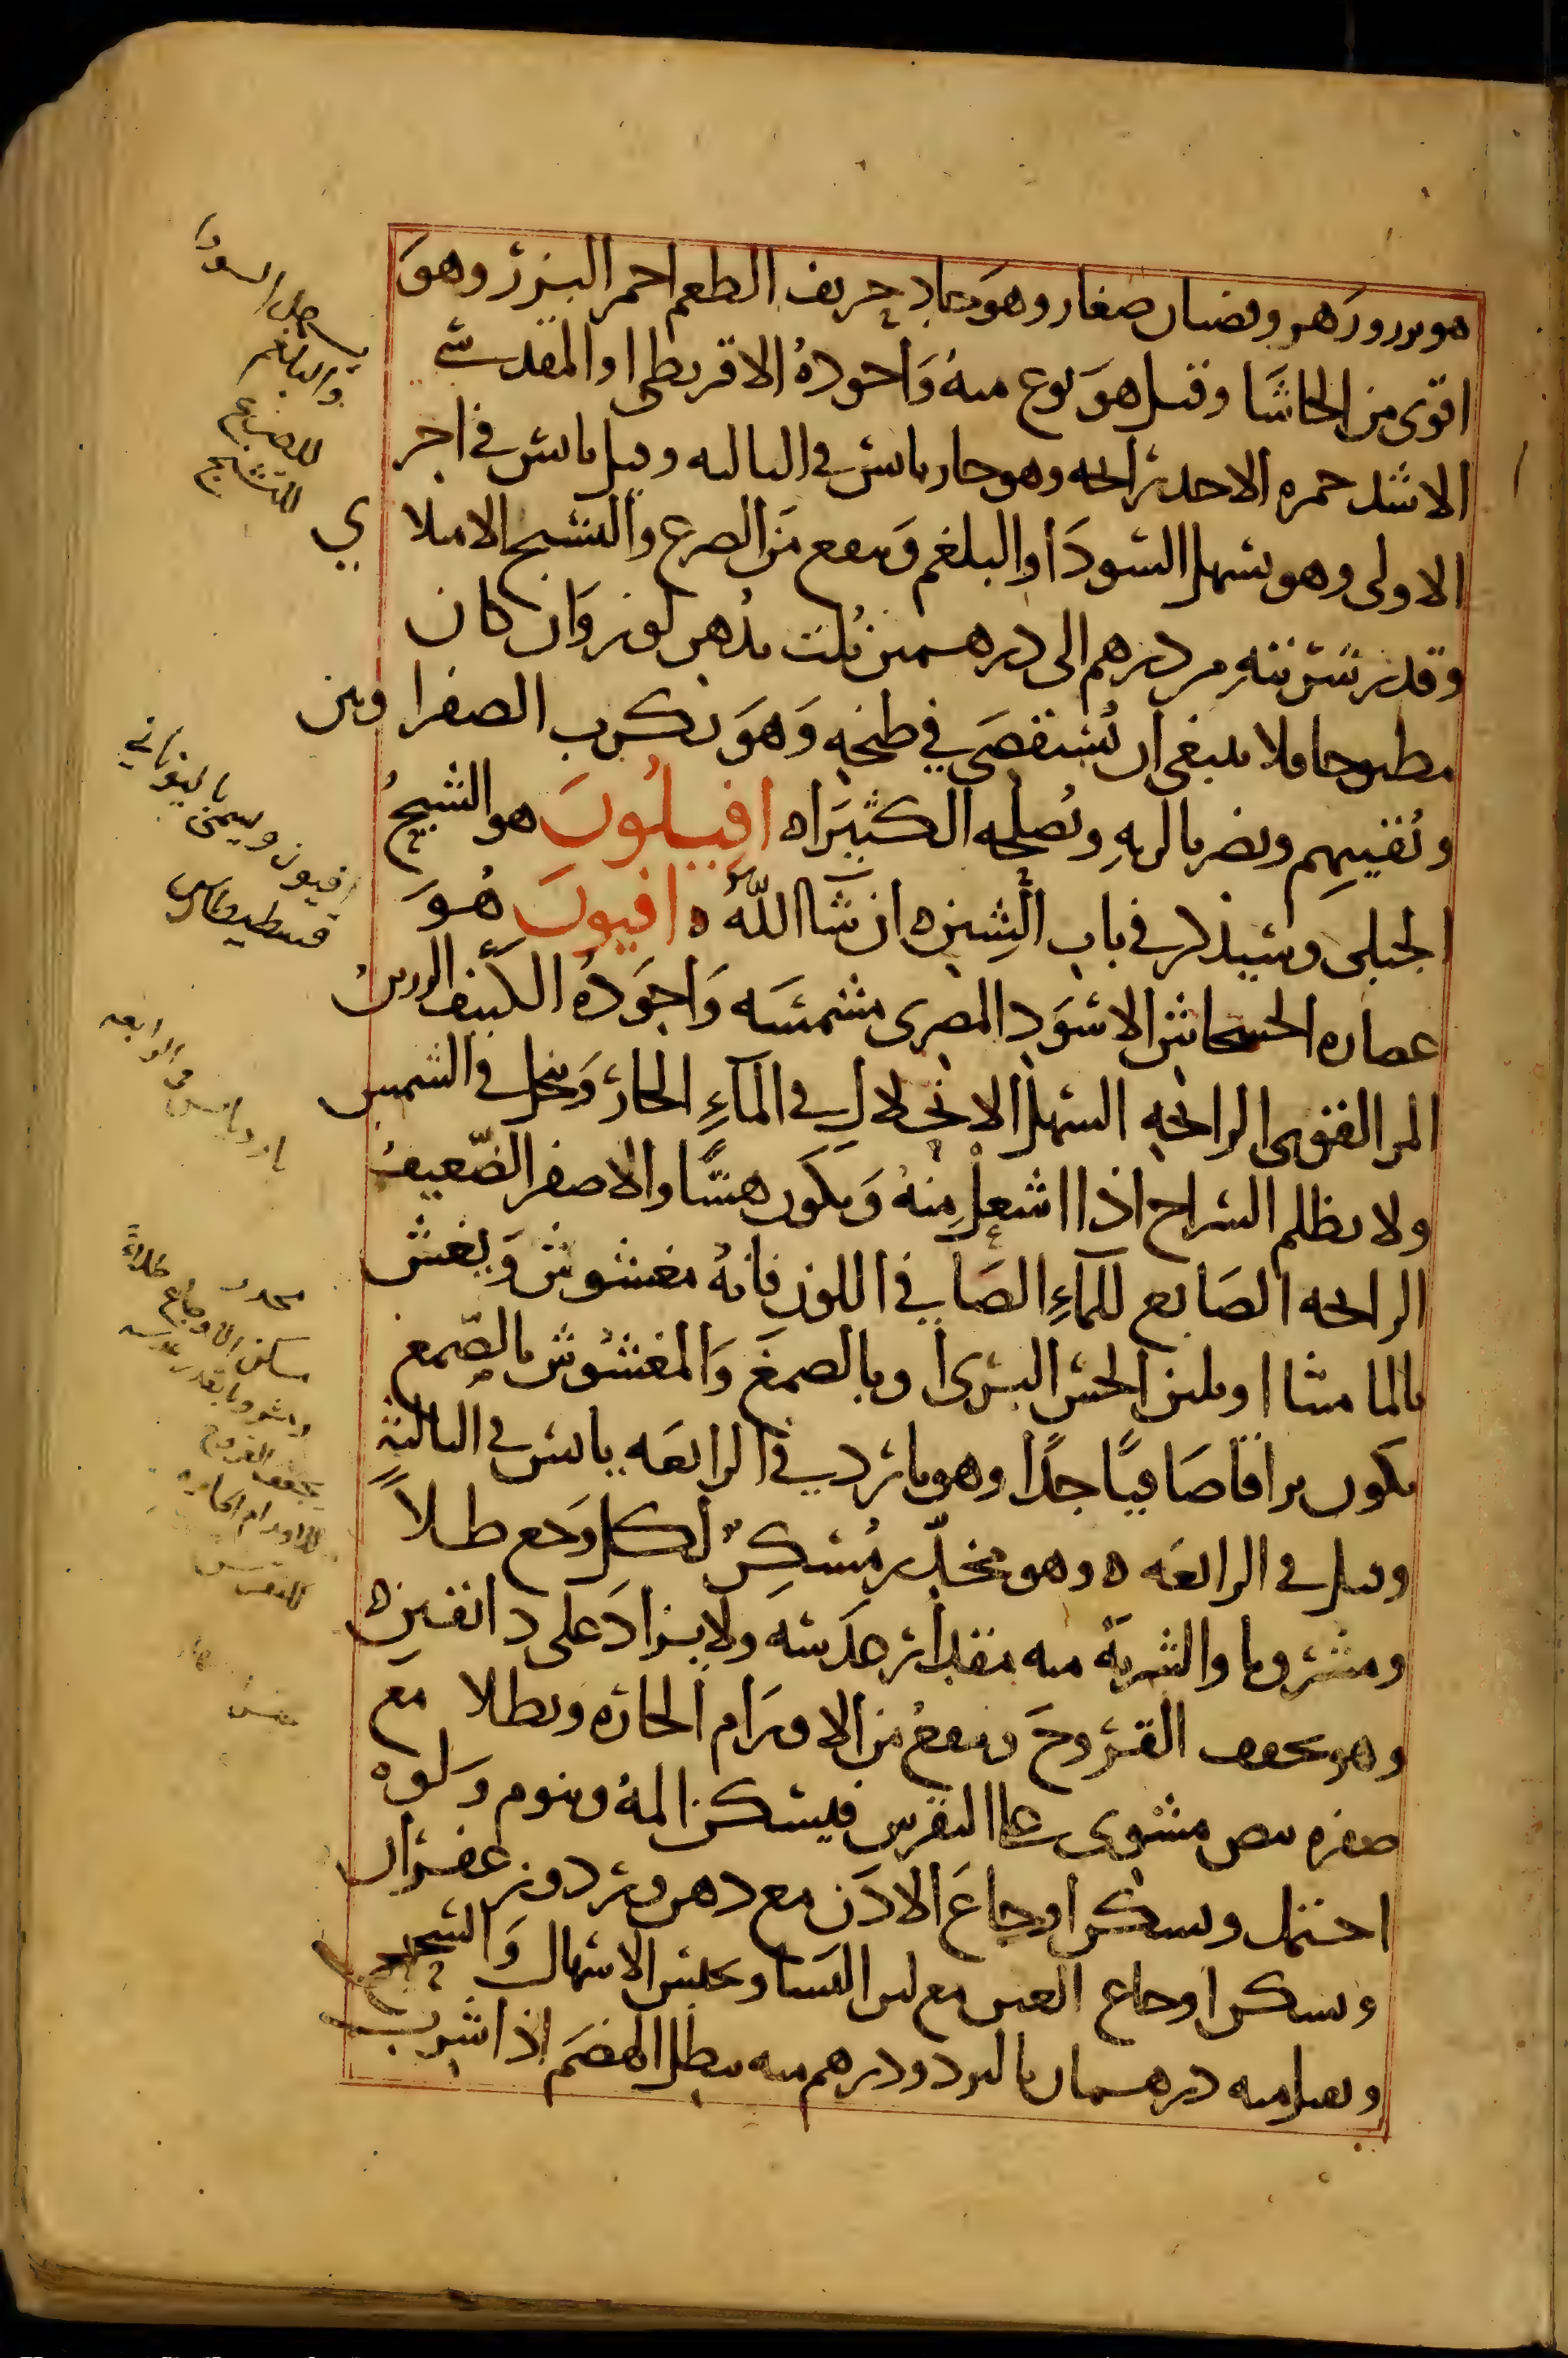 هو بزر وزهر وقضبان صغار وهو حاد حريف الطعم احمر البزر وهو
اقوى من الحاشا وقيل هو نوع منه واجوده الاقريطى او المقدسي
الاشد حمره الاحد رائحه وهو حار يابس في الثالثه وقيل يابس في اخر
الاولى وهو يسهل السودا والبلغم وينفع من الصرع والتشنج الامتلا
ي
وقدر شربته من درهم الى درهمين ثلت بدهن لوز وان كان
مطبوخا فلا ينبغى ان يستقصى في طبخه وهو يكرب الصفراويين
ويقييهم ويضر بالريه ويصلحه الكثيراه افيبلون هو الشيح
الجبلى وسيذكر في باب الشين ان شا الله ه افيون هو
عصاره الخشخاش الاسود المصرى مشمسه واجوده الكثيف الرزين
المر القوى الرائحه السهل الانحلال في الماء الحار وينحل في الشمس
ولا يظلم السراج اذا اشعل منه ويكون هشا والاصفر الضعيف
الرائحه الصابغ للماء الصافي اللون فانه مغشوش ويغش
بالماميثا او بلبن الخس البرى او بالصمغ والمغشوش بالصمغ
يكون براقا صافيا جدا وهو بارد في الرابعه يابس في الثالثة
وقيل في الرابعه ه وهو مخدر مسكر لكل وجع طلا
ومشروبا والشربة منه مقدار عدسه ولا يزاد على دانقين ه
وهو يجفف القروح وينفع من الاورام الحاره ويطلا مع
صفره بيض مشوى على النقرس فيسكن المه وينوم ولو
احتمل ويسكن اوجاع الاذن مع دهن ورد وزعفران
ويسكن اوجاع العين مع لبن النسا ويحبس الاسهال والسحج
ويقتل منه درهمان بالبرد ودرهم منه يبطل الهضم اذا شرب
يسهل السودا
والبلغم
للصرع
للتشنج
افيون ويسمى باليونانيه
بارد يابس في الرابعه
مخدر
مسكن الاوجاع طلاءً
يجفف القروح
للاورام الحاره
للنقرس